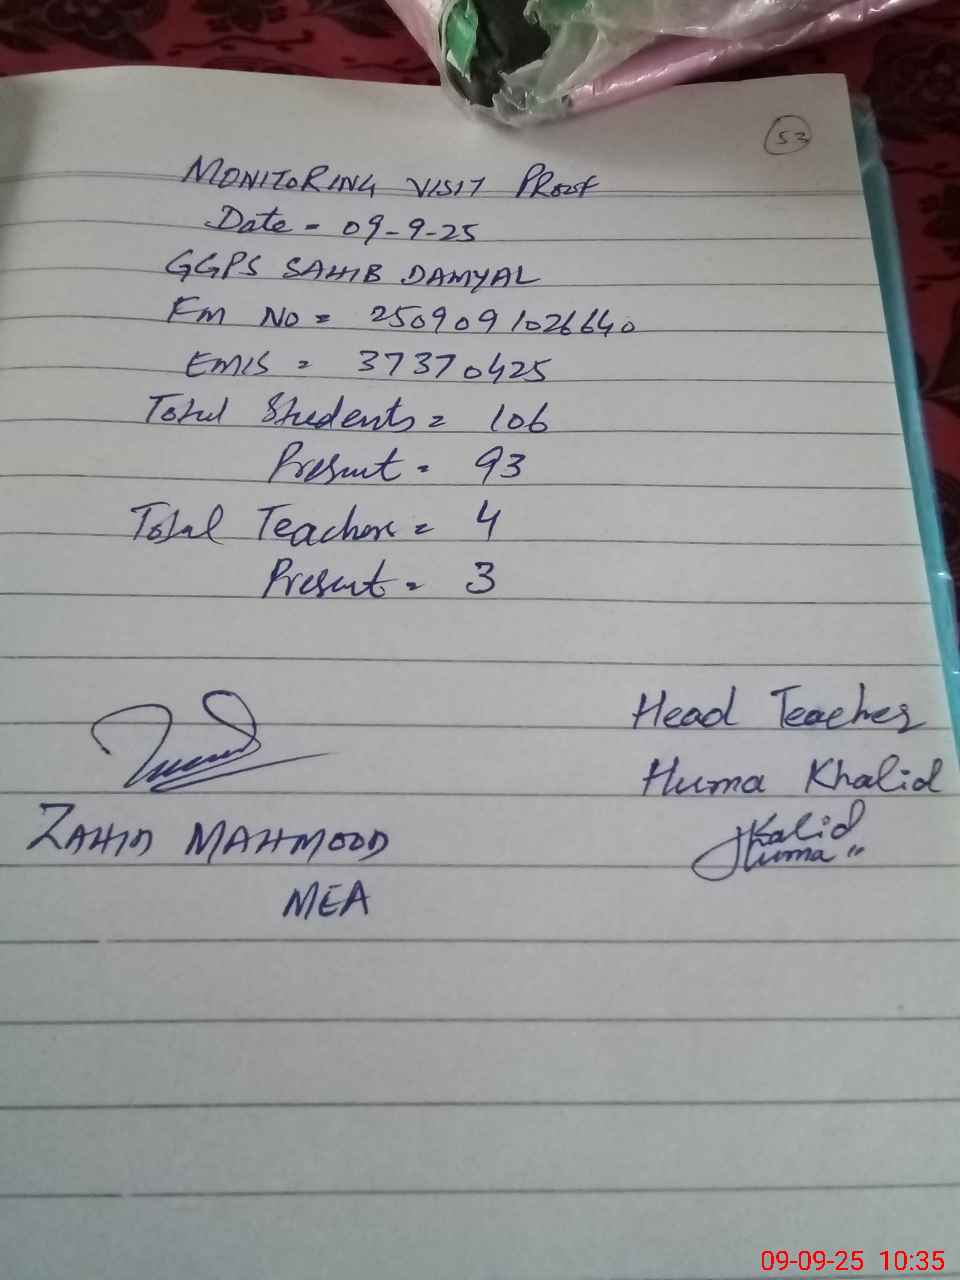 53
MONITORING VISIT PROOF
Date = 09-9-25
GGPS SAHIB DAMYAL
FM NO = 2509091026640
EMIS = 37370425
Total Students = 106
Present = 93
Total Teachers = 4
Present = 3
Head Teacher
Huma Khalid
ZAHID MAHMOOD
Kalid
Huma "
MEA
09-09-25 10:35